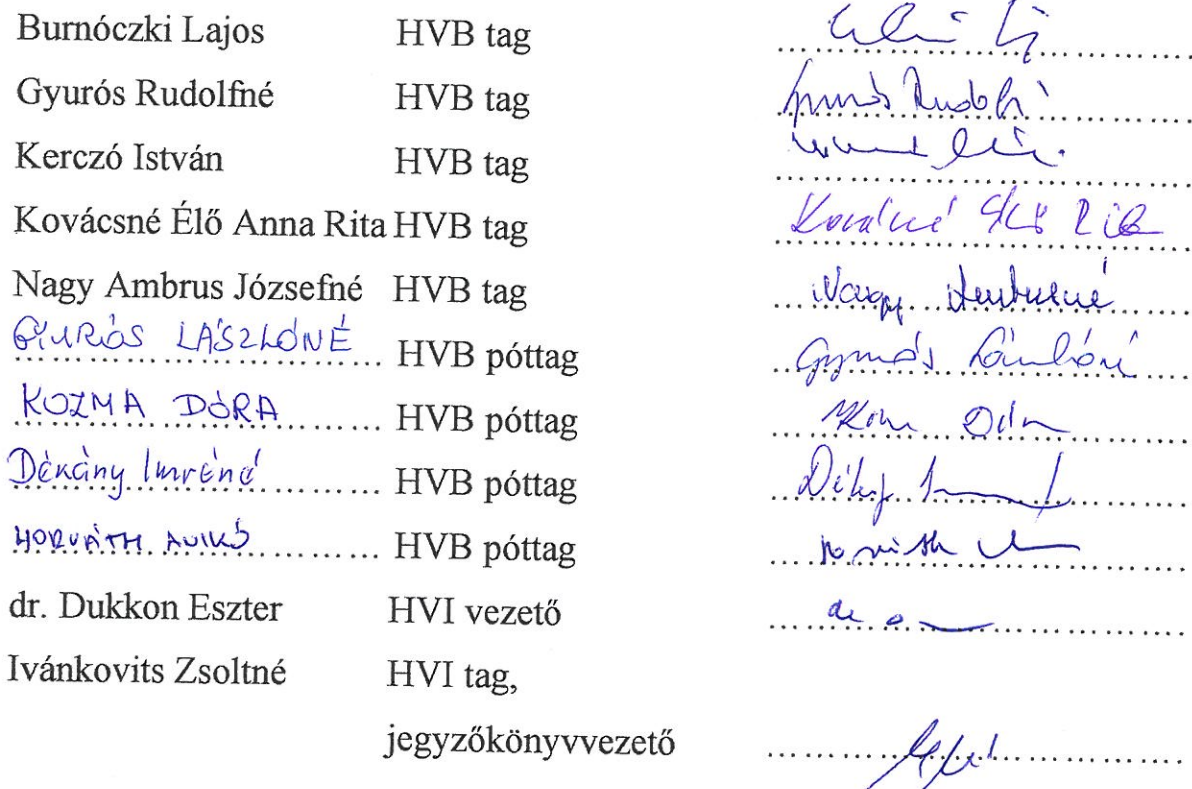 Burnóczki Lajos HVB tag
Gyurós Rudolfné HVB tag Gyurós Rudolfné
Kerczó István HVB tag
Kovácsné Élő Anna Rita HVB tag Kovácsné Élő Rita
Nagy Ambrus Józsefné HVB tag Nagy Ambrusné
GYURÓS LÁSZLÓNÉ HVB póttag Gyurós Lászlóné
KOZMA DÓRA HVB póttag
Dékány Imréné HVB póttag
HORVÁTH ANIKÓ HVB póttag Horváth
dr. Dukkon Eszter HVI vezető
Ivánkovits Zsoltné HVI tag,
jegyzőkönyvvezető